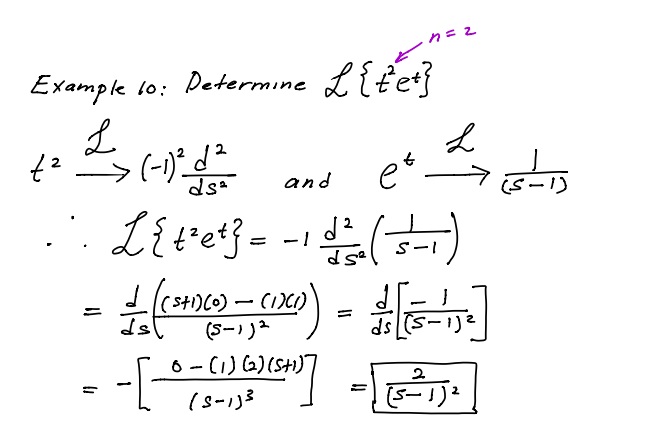 n = 2
Example 10: Determine ℒ{t²eᵗ}
t² —ℒ→ (-1)² d²/ds² and eᵗ —ℒ→ 1/(s-1)
∴ ℒ{t²eᵗ} = -1 d²/ds² (1/(s-1))
= d/ds (((s+1)(0) - (1)(1))/(s-1)²) = d/ds [-1/(s-1)²]
= -[(0 - (1)(2)(s+1))/(s-1)³] = 2/(s-1)²